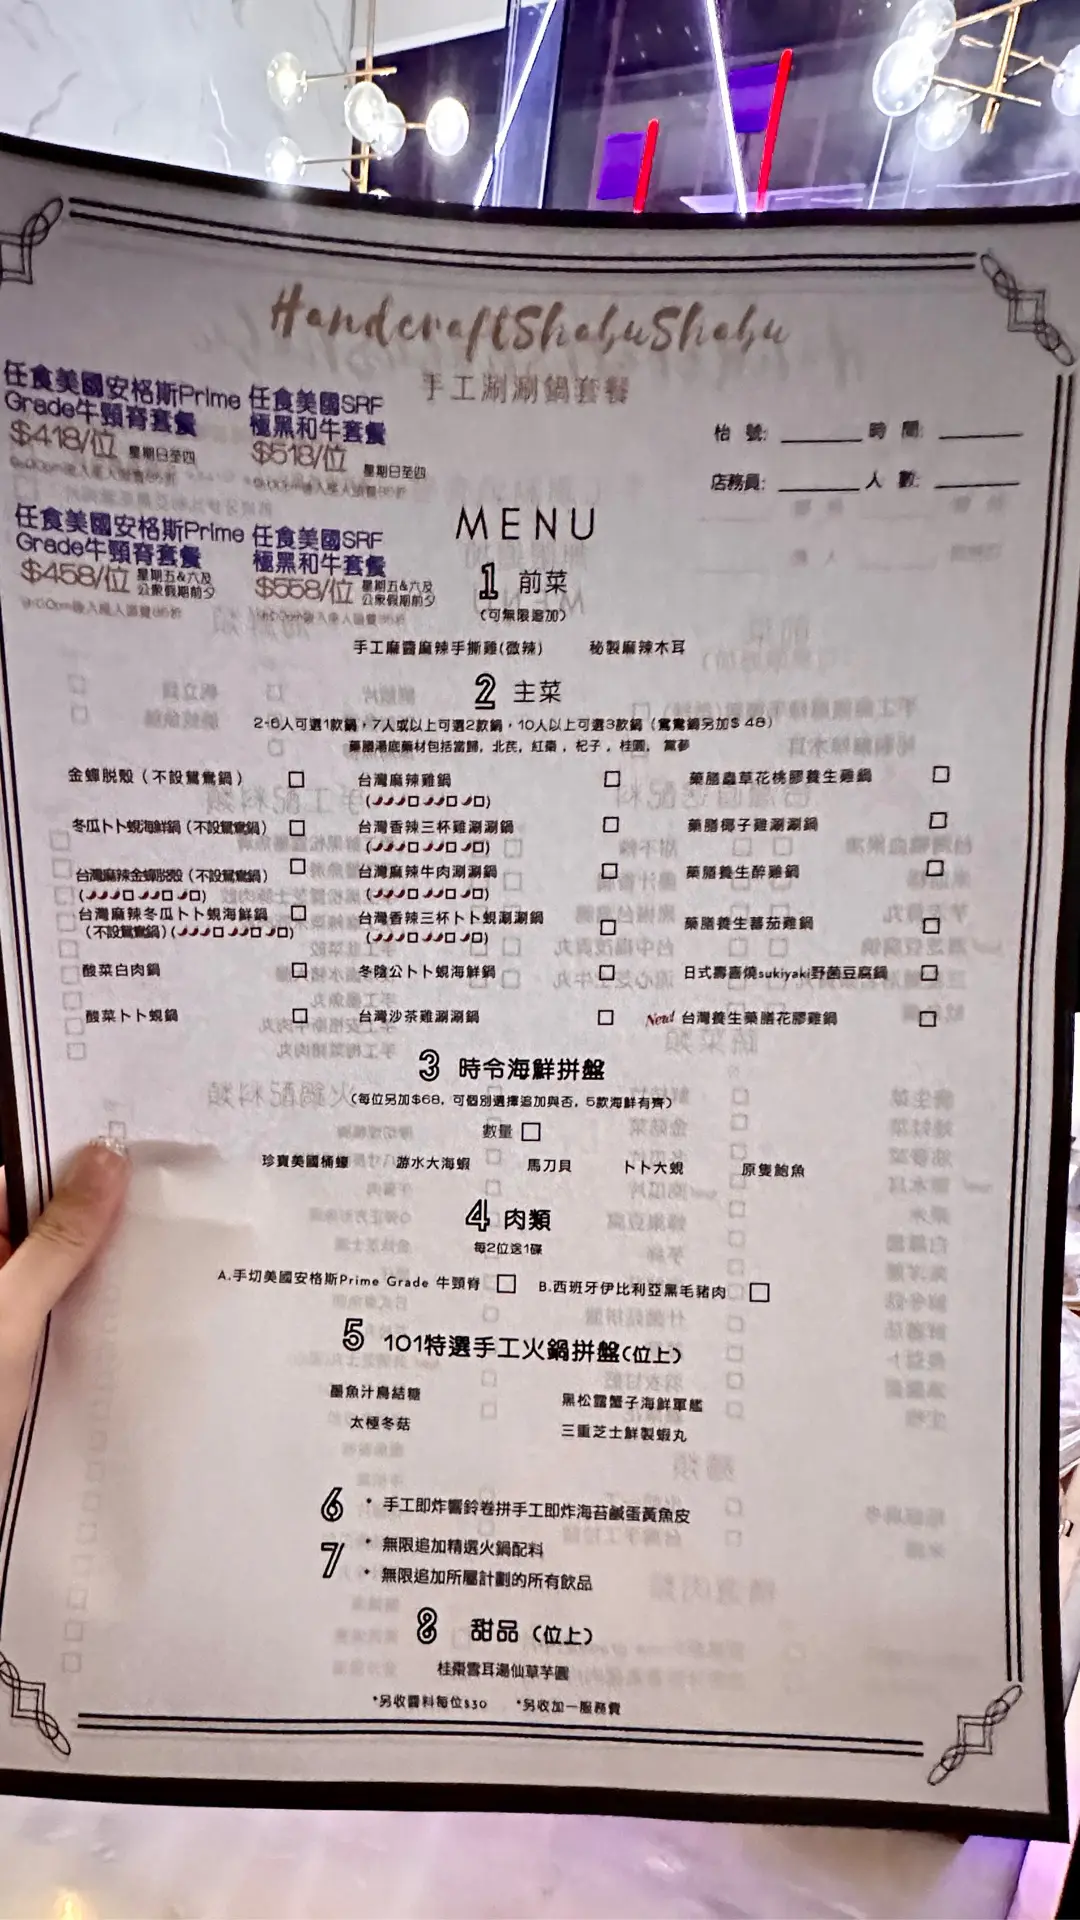 HandcraftShabuShabu
手工涮涮鍋套餐
任食美國安格斯Prime
Grade牛頸脊套餐
$418/位 星期日至四
任食美國SRF
極黑和牛套餐
$518/位 星期日至四
任食美國安格斯Prime
Grade牛頸脊套餐
$458/位 星期五&六及
公眾假期前夕
任食美國SRF
極黑和牛套餐
$558/位 星期五&六及
公眾假期前夕
枱 號: 時 間:
店務員: 人 數:
MENU
1 前菜
(可無限追加)
手工麻醬麻辣手撕雞(微辣) 秘製麻辣木耳
2 主菜
2-6人可選1款鍋，7人或以上可選2款鍋，10人以上可選3款鍋（鴛鴦鍋另加$ 48）
藥膳湯底藥材包括當歸，北芪，紅棗，杞子，桂圓，黨參
金蟬脱殼（不設鴛鴦鍋） 台灣麻辣雞鍋 藥膳蟲草花桃膠養生雞鍋
冬瓜卜卜蜆海鮮鍋（不設鴛鴦鍋） 台灣香辣三杯雞涮涮鍋 藥膳椰子雞涮涮鍋
台灣麻辣金蟬脱殼（不設鴛鴦鍋） 台灣麻辣牛肉涮涮鍋 藥膳養生醉雞鍋
台灣麻辣冬瓜卜卜蜆海鮮鍋 台灣香辣三杯卜卜蜆涮涮鍋 藥膳養生蕃茄雞鍋
（不設鴛鴦鍋）
酸菜白肉鍋 冬陰公卜卜蜆海鮮鍋 日式壽喜燒sukiyaki野菌豆腐鍋
酸菜卜卜蜆鍋 台灣沙茶雞涮涮鍋 New! 台灣養生藥膳花膠雞鍋
3 時令海鮮拼盤
(每位另加$68，可個別選擇追加與否，5款海鮮有齊)
數量
珍寶美國桶蠔 游水大海蝦 馬刀貝 卜卜大蜆 原隻鮑魚
4 肉類
每2位送1碟
A.手切美國安格斯Prime Grade 牛頸脊 B.西班牙伊比利亞黑毛豬肉
5 101特選手工火鍋拼盤(位上)
墨魚汁鳥結糖 黑松露蟹子海鮮軍艦
太極冬菇 三重芝士鮮製蝦丸
6 • 手工即炸響鈴卷拼手工即炸海苔鹹蛋黃魚皮
7 • 無限追加精選火鍋配料
• 無限追加所屬計劃的所有飲品
8 甜品（位上）
桂棗雪耳湯仙草芋圓
*另收醬料每位$30 *另收加一服務費